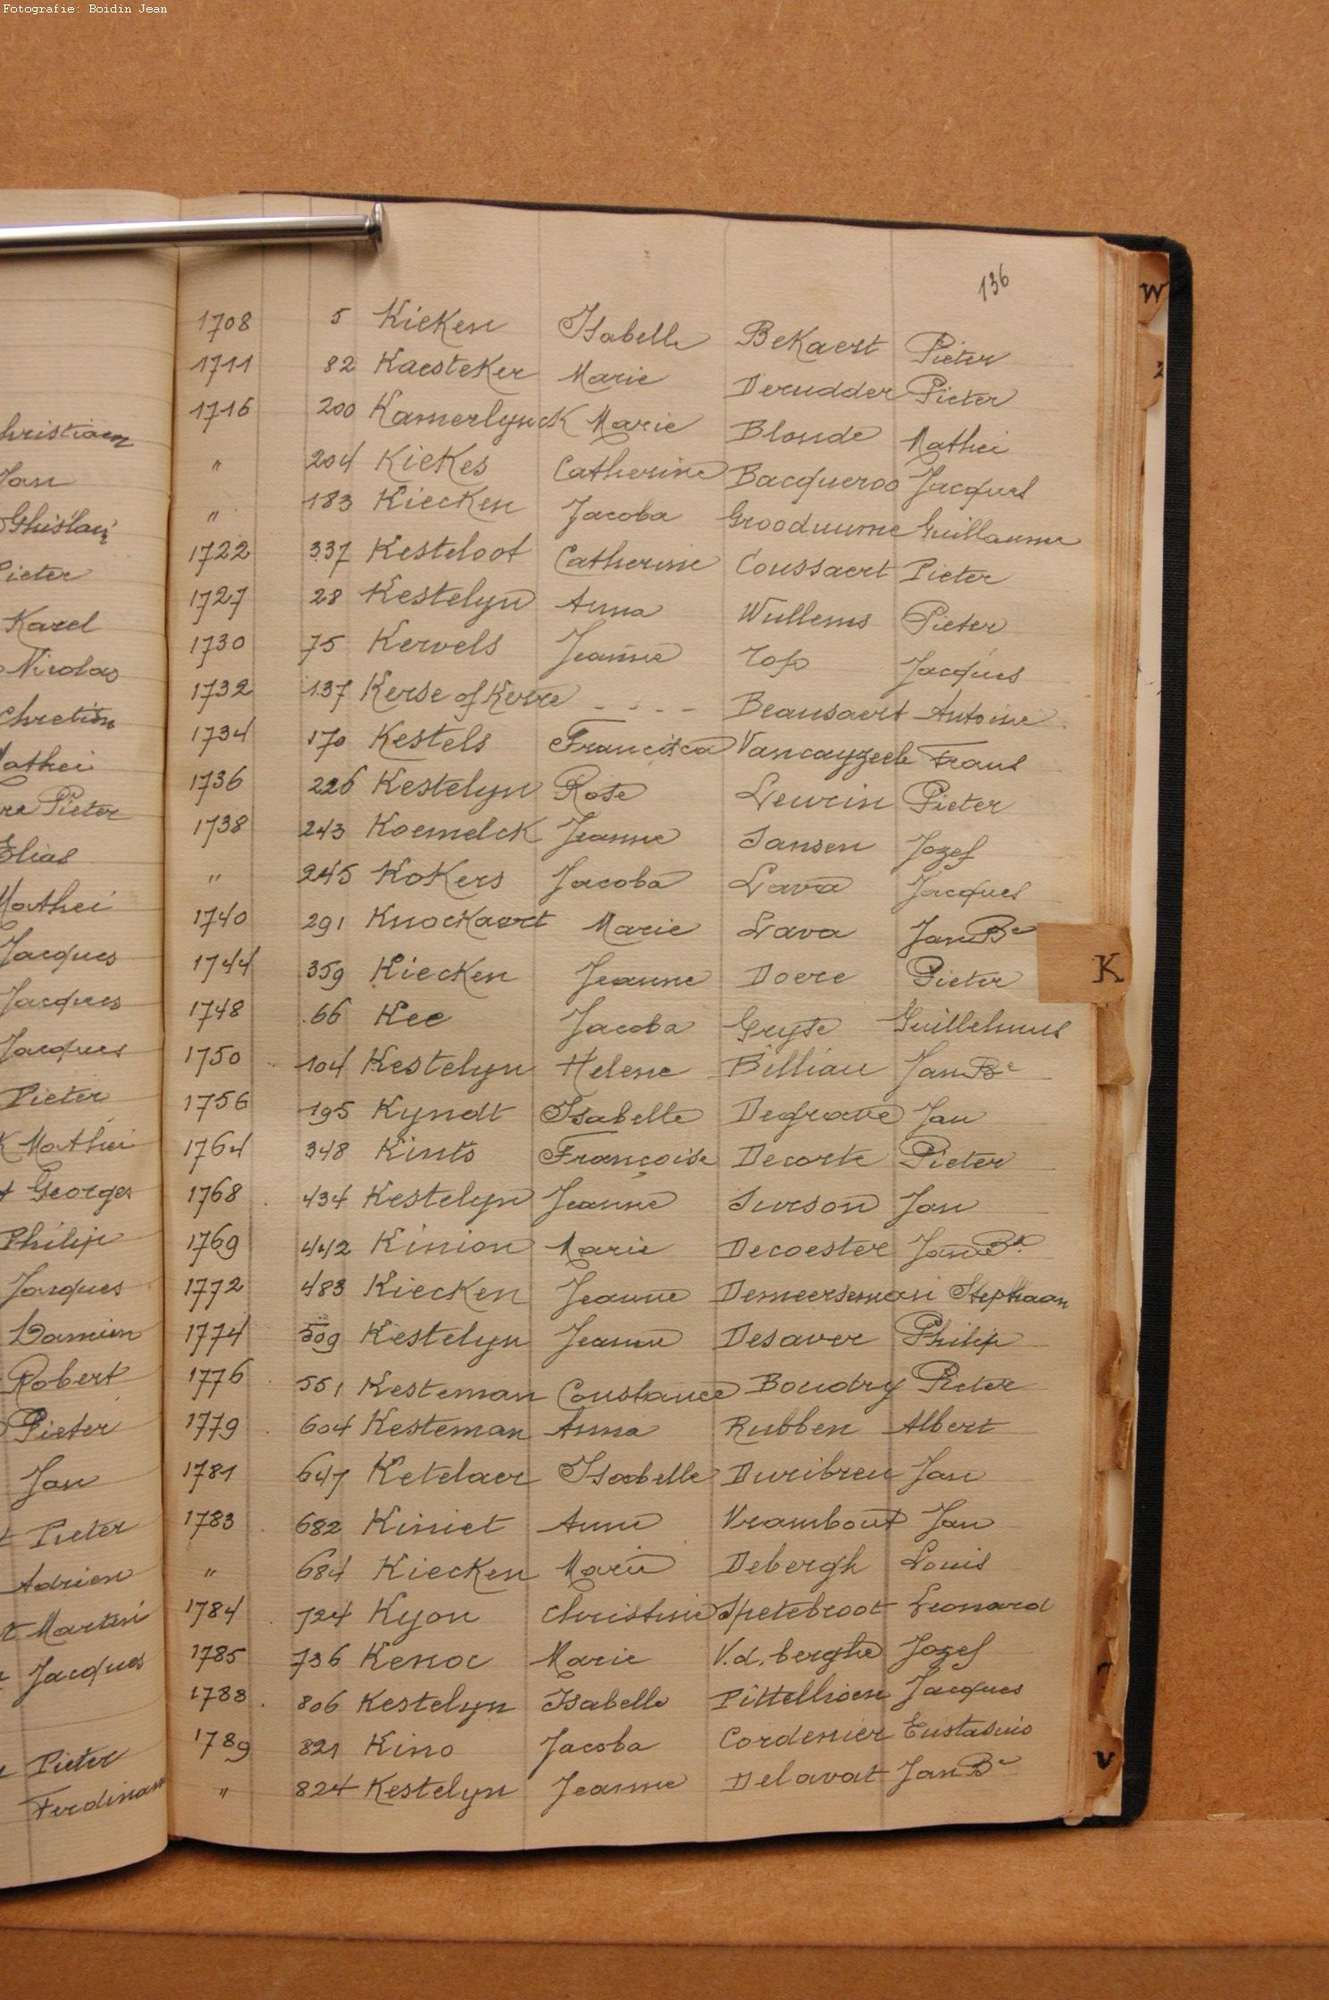 Fotografie: Boidin Jean
136
W
1708 5 Kieken Isabelle Bekaert Pieter
1711 82 Kaesteker Marie Derudder Pieter
1716 200 Kamerlynck Marie Blonde Mathei
" 204 Kiekes Catherine Bacqueroo Jacques
" 183 Kiecken Jacoba Grooduume Guillaume
1722 337 Kesteloot Catherine Coussaert Pieter
1727 28 Kestelyn Anna Wullems Pieter
1730 75 Kervels Jeanne Jacques
1732 137 Kerse of Kerre - - - - Beausaert Antoine
1734 170 Kestels Francisca Vancayzeele Frans
1736 226 Kestelyn Rose Leurin Pieter
1738 243 Koemelck Jeanne Jansen Jozef
" 245 Kokers Jacoba Lava Jacques
1740 291 Knockaert Marie Lava Jan Bte
1744 359 Kiecken Jeanne Doere Pieter
K
1748 66 Kee Jacoba Gryse Guillelmus
1750 104 Kestelyn Helene Billiau Jan Bte
1756 195 Kyndt Isabelle Degrave Jan
1764 348 Kints Françoise Decorte Pieter
1768 434 Kestelyn Jeanne Jurson Jan
1769 442 Kinion Marie Decoester Jan Bte
1772 483 Kiecken Jeanne Demeerseman Stephaan
1774 509 Kestelyn Jeanne Desaver Philip
1776 551 Kesteman Constance Boudry Pieter
1779 604 Kesteman Anna Rubben Albert
1781 647 Ketelaer Isabelle Duribreu Jan
1783 682 Kiniet Anne Vrambout Jan
" 684 Kiecken Marie Debergh Louis
1784 724 Kyon Christine Spetebroot Leonard
1785 736 Kenoc Marie V.d. berghe Jozef
1788 806 Kestelyn Isabelle Pittellioen Jacques
1789 821 Kino Jacoba Cordenier Eustasuis
" 824 Kestelyn Jeanne Delavat Jan Bte
V
Jan
Pieter
Karel
Nicolas
Chretien
Mathei
Pieter
Elias
Mathei
Jacques
Jacques
Jacques
Pieter
Mathei
Georges
Philip
Jacques
Damien
Robert
Pieter
Jan
Pieter
Adrien
Martin
Jacques
Pieter